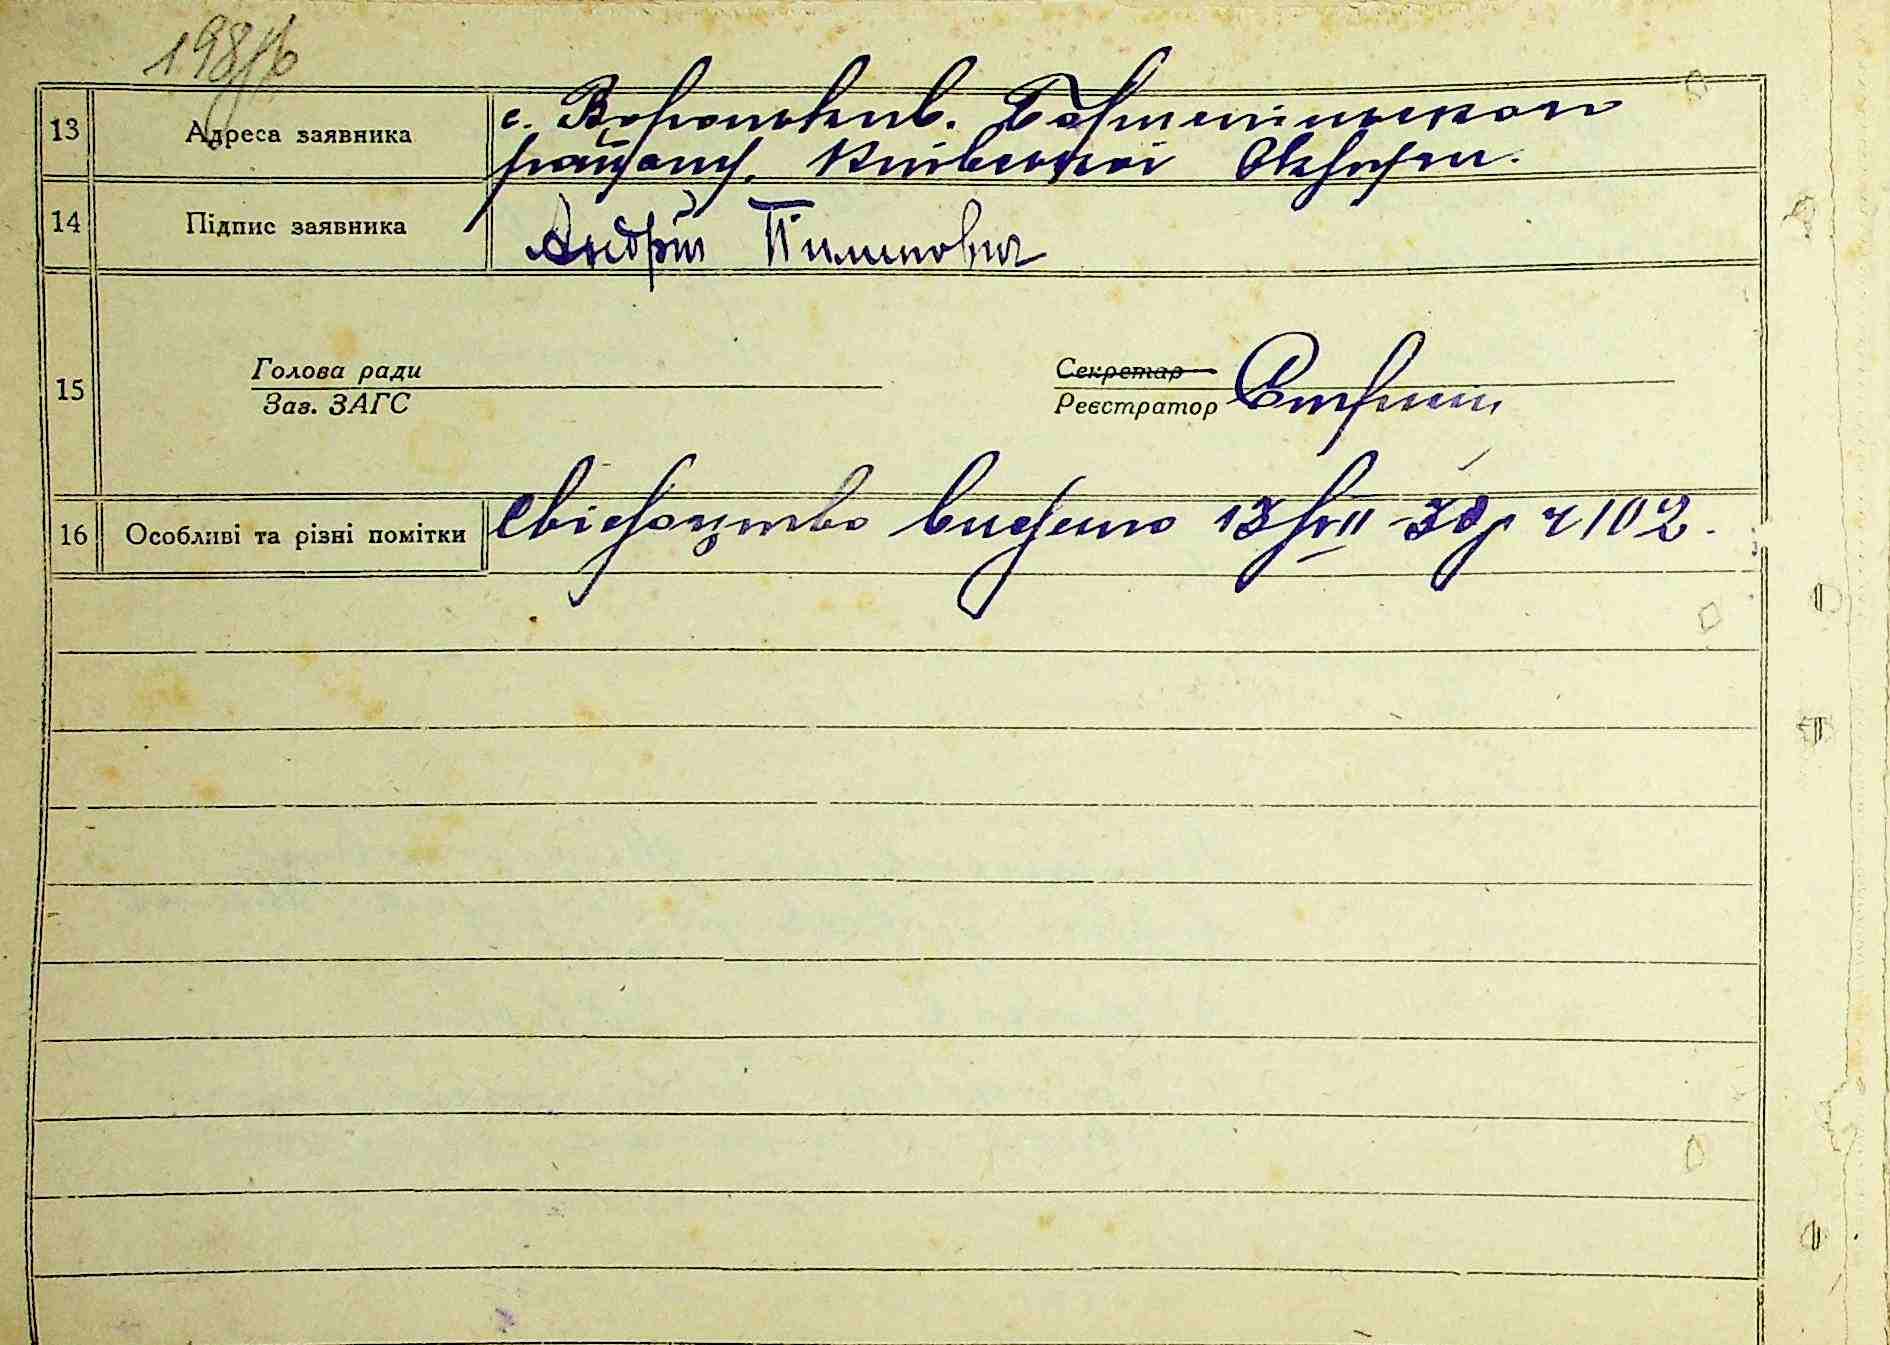 198
13 Адреса заявника с. Вороньків. Бориспільского
району, Київської Округи.
14 Підпис заявника Андрій Пилипович
15 Голова ради Секретар
Зав. ЗАГС Реєстратор
16 Особливі та різні помітки Свідоцтво видано 13/VII 30р ч 102.